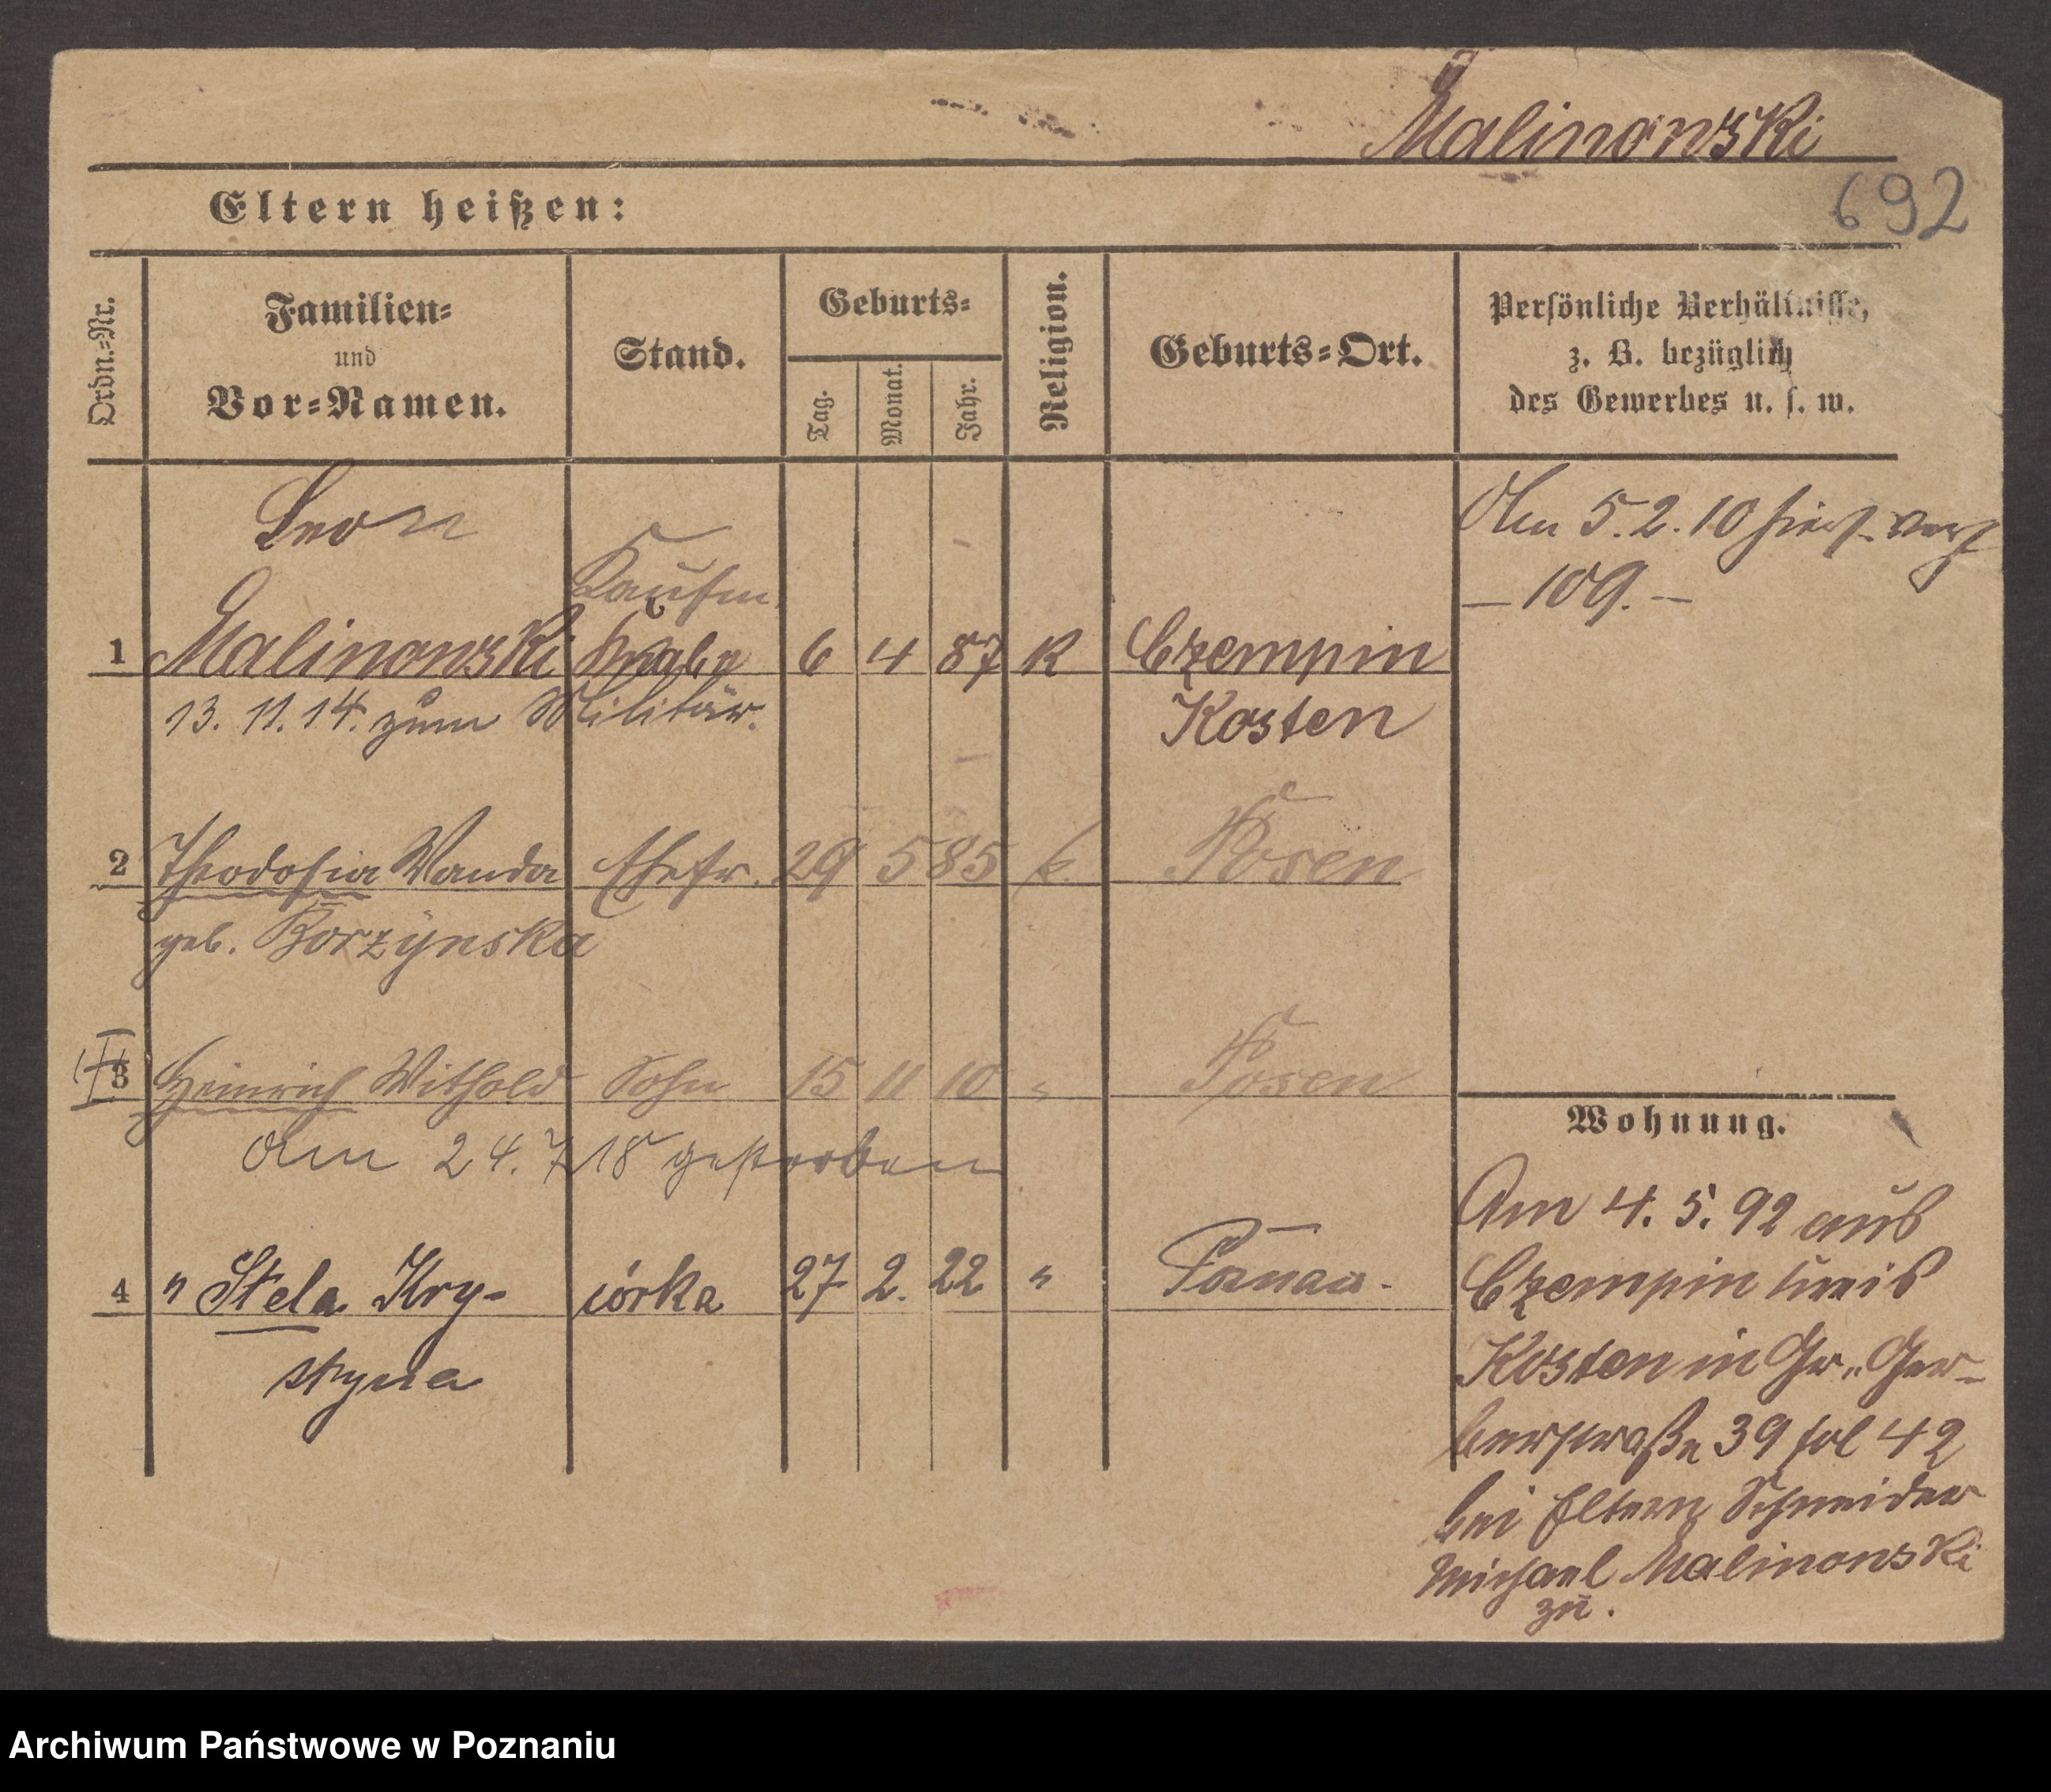 Malinowski
692
Eltern heißen:
Ordn.-Nr.
Familien-
und
Vor-Namen.
Stand.
Geburts-
Tag.
Monat.
Jahr.
Religion.
Geburts-Ort.
Persönliche Verhältnisse,
z. B. bezüglich
des Gewerbes u. s. w.
Leon
Kaufm.
1 Malinowski Knabe 6 4 87 K Czempin
13. 11. 14. zum Militär.
Kosten
Am 5. 2. 10 hiers. verh
– 109. –
2 Theodosia Wanda Ehefr. 29 5 85 k. Posen
geb. Borzynska
3 Heinrich Withold Sohn 15 11 10 " Posen
am 24. 7 18 gestorben
4 " Stela Kry- córka 27 2. 22 " Poznań.
styna
Wohnung.
Am 4. 5. 92 aus
Czempin Kreis
Kosten in Gr. Ger-
berstraße 39 fol 42
bei Eltern Schneider
Michael Malinowski
zu.
Archiwum Państwowe w Poznaniu